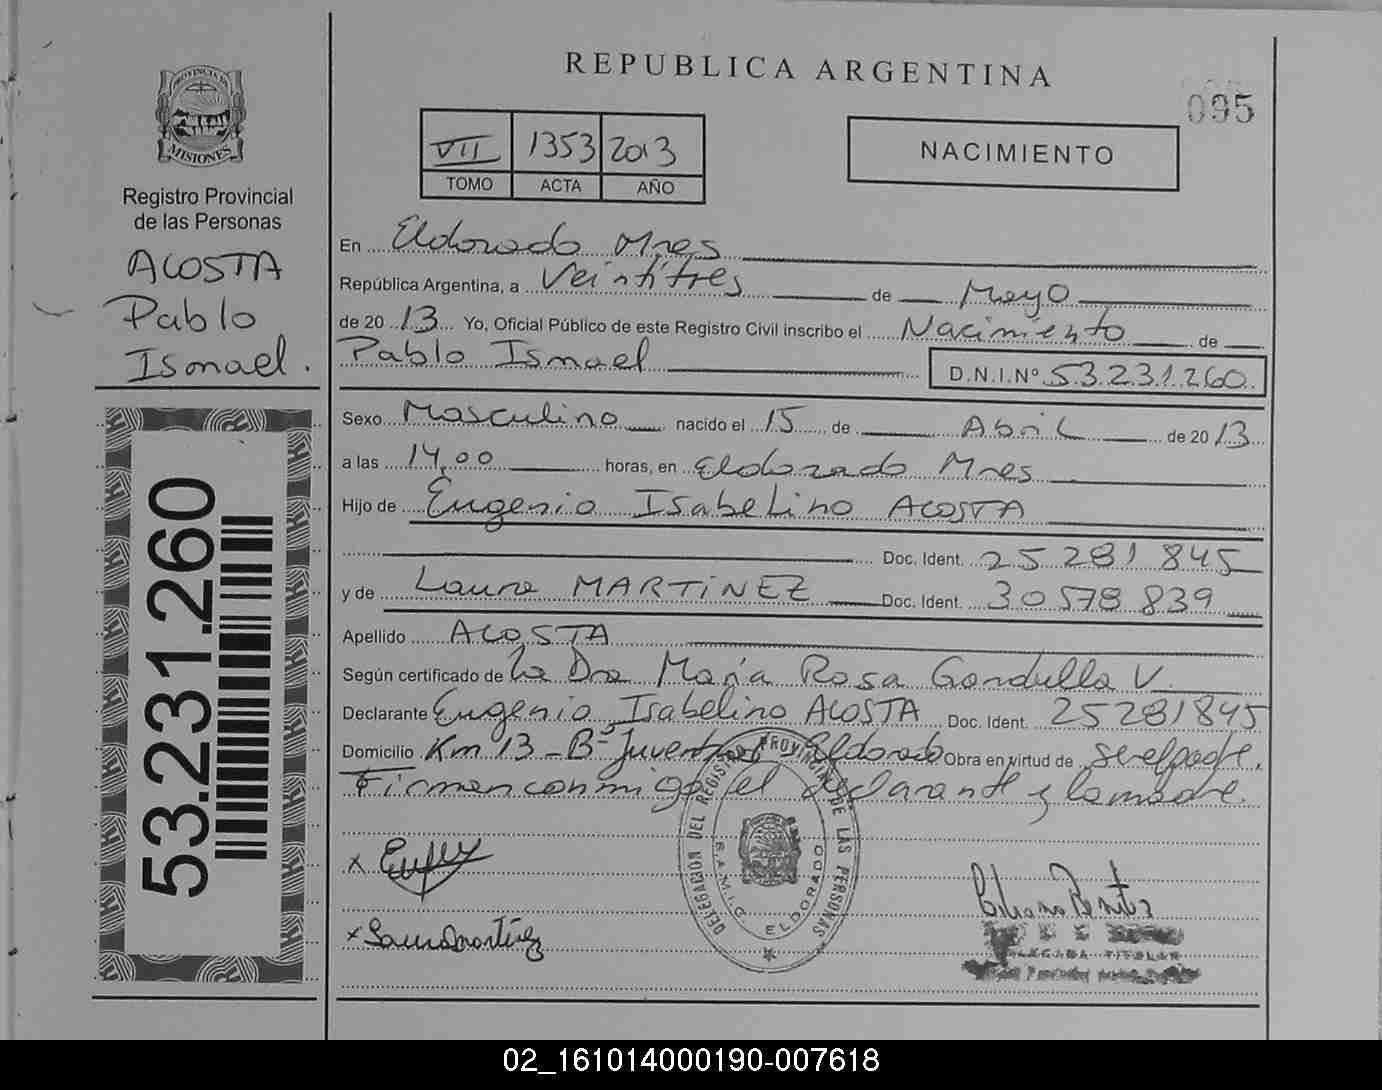 REPUBLICA ARGENTINA
095
PROVINCIA DE
MISIONES
Registro Provincial
de las Personas
ACOSTA
Pablo
Ismael.
53.231.260
VII 1353 2013
TOMO ACTA AÑO
NACIMIENTO
En Eldorado Mnes
República Argentina, a Veintitres de Mayo
de 20 13 Yo, Oficial Público de este Registro Civil inscribo el Nacimiento de
Pablo Ismael D.N.I.Nº 53.231.260
Sexo Masculino nacido el 15 de Abril de 20 13
a las 14,00 horas, en Eldorado Mnes
Hijo de Eugenio Isabelino ACOSTA
Doc. Ident. 25 281 845
y de Laura MARTINEZ Doc. Ident. 30 578 839
Apellido ACOSTA
Según certificado de la Dra María Rosa Gondulla V.
Declarante Eugenio Isabelino ACOSTA Doc. Ident. 25281845
Domicilio Km 13 - Bº Juventud Eldorado Obra en virtud de ser el padre.
Firman conmigo el declarante y la madre.
DELEGACION DEL REGISTRO PROVINCIAL DE LAS PERSONAS
ELDORADO
x
x Laura Martínez
DELEGADA TITULAR
02_161014000190-007618